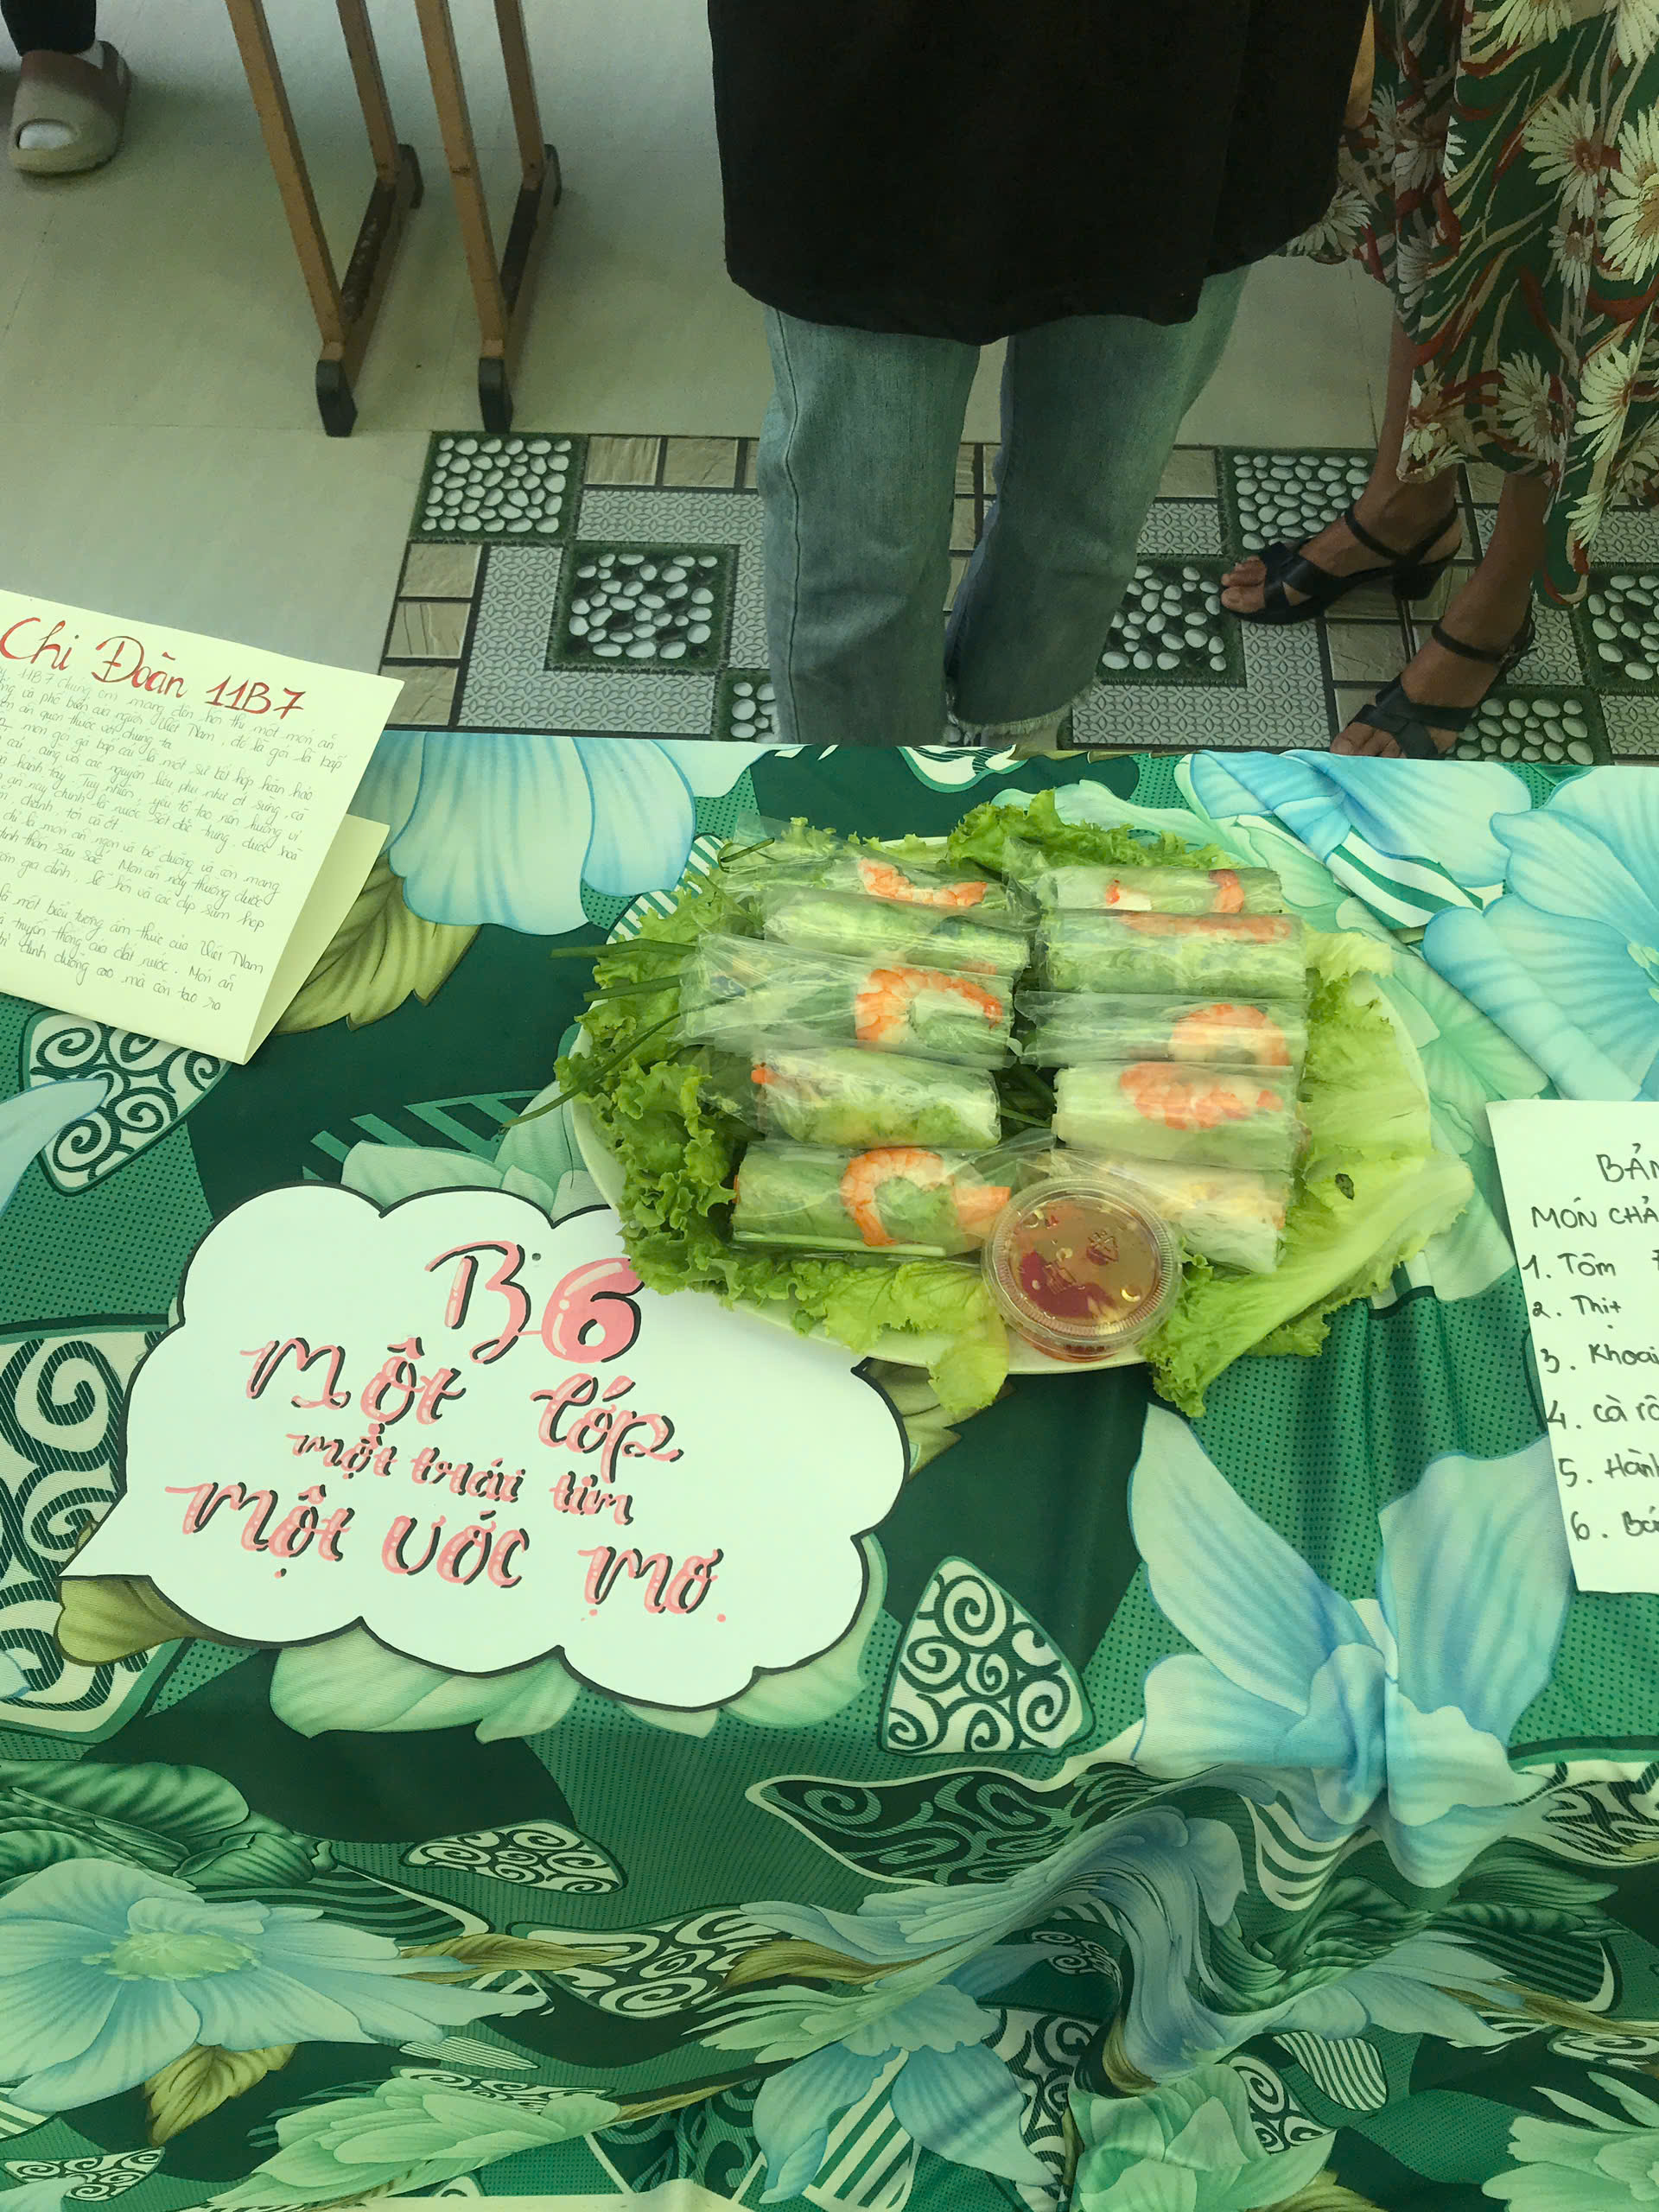 Chi Đoàn 11B7
11B7 chúng em mang đến hội thi một món ăn
và phổ biến của người Việt Nam, đó là gỏi gà bắp
ăn quen thuộc với chúng ta
món gỏi gà bắp cải là một sự kết hợp hoàn hảo
cải, cùng với các nguyên liệu phụ như ớt sừng, cà
hành tây. Tuy nhiên, yếu tố tạo nên hương vị
ăn này chính là nước sốt đặc trưng, được hoà
chanh, tỏi và ớt.
chỉ là món ăn ngon và bổ dưỡng và còn mang
tinh thần sâu sắc. Món ăn này thường được
gia đình, lễ hội và các dịp sum họp
là một biểu tượng ẩm thực của Việt Nam
truyền thống của đất nước. Món ăn
dinh dưỡng cao mà còn tạo ra
B6
Một lớp
một trái tim
một ước mơ.
MÓN CHẢ
1. Tôm
2. Thịt
3. Khoai
4. cà rố
5. Hành
6.